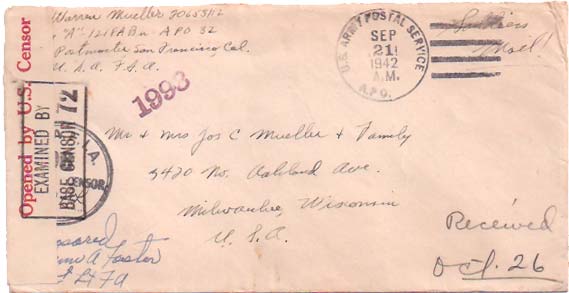 Warren Mueller 20653112
"A" 121 F.A Bn - APO 32
Postmaster San Francisco, Cal.
U.S.A. F.S.A.
1993
U.S. ARMY POSTAL SERVICE
SEP
21
1942
A.M.
A.P.O.
Soldiers
Mail
Opened by U.S. Censor
EXAMINED BY
BASE CENSOR 72
CENSOR
Mr & Mrs Jos C Mueller & Family
3420 No. Oakland Ave.
Milwaukee, Wisconsin
U.S.A.
Received
Oct. 26
Foster